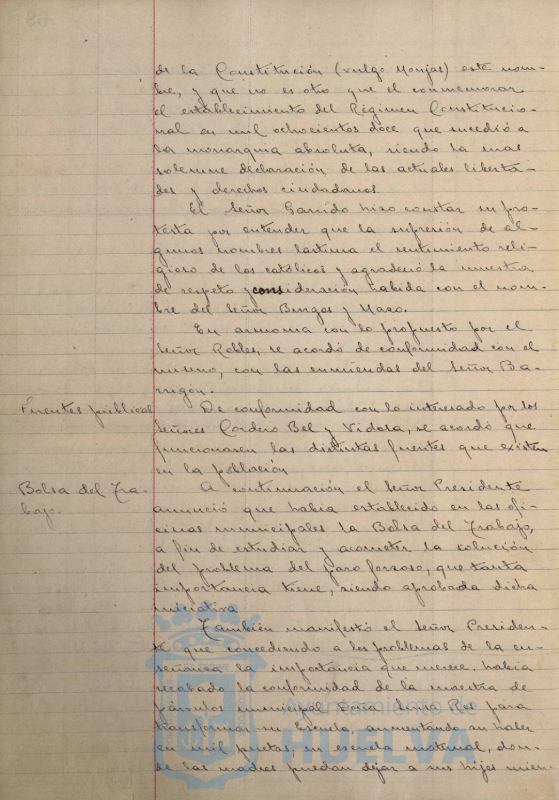 de la Constitución (vulgo Monjas) este nom-
bre, y que no es otro que el conmemorar
el establecimiento del Régimen Constitucio-
nal en mil ochocientos doce que sucedió a
la monarquia absoluta, siendo la mas
solemne declaración de las actuales liberta-
des y derechos ciudadanos
El Señor Garrido hizo constar su pro-
testa por entender que la supresion de al-
gunos nombres lastima el sentimiento reli-
gioso de los católicos y agradeció la muestra
de respeto y consideración habida con el nom-
bre del Señor Burgos y Mazo.
En armonia con lo propuesto por el
Señor Robles, se acordó de conformidad con el
mismo, con las enmiendas del Señor Ba-
rrigón.
Fuentes publicas
De conformidad con lo interesado por los
Señores Cordero Bel y Vidosa, se acordó que
funcionaren las distintas fuentes que existen
en la población
Bolsa del Tra-
bajo.
A continuación el Señor Presidente
anunció que habia establecido en las ofi-
cinas municipales la Bolsa del Trabajo,
a fin de estudiar y acometer la solución
del problema del paro forzoso, que tanta
importancia tiene, siendo aprobada dicha
iniciativa
También manifestó el Señor Presiden-
te que concediendo a los problemas de la en-
señanza la importancia que merece, habia
recabado la conformidad de la maestra de
párvulos municipal Doña Luisa Ros para
transformar su Escuela, aumentando su haber
en mil pesetas, en escuela maternal, don-
de las madres puedan dejar a sus hijos mien-
Ayuntamiento de
HUELVA